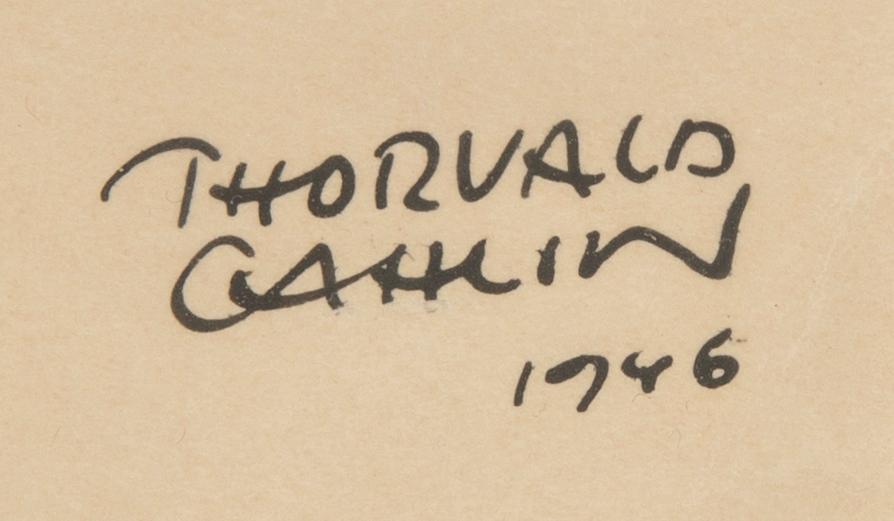 THORVALD
GAHLIN
1946